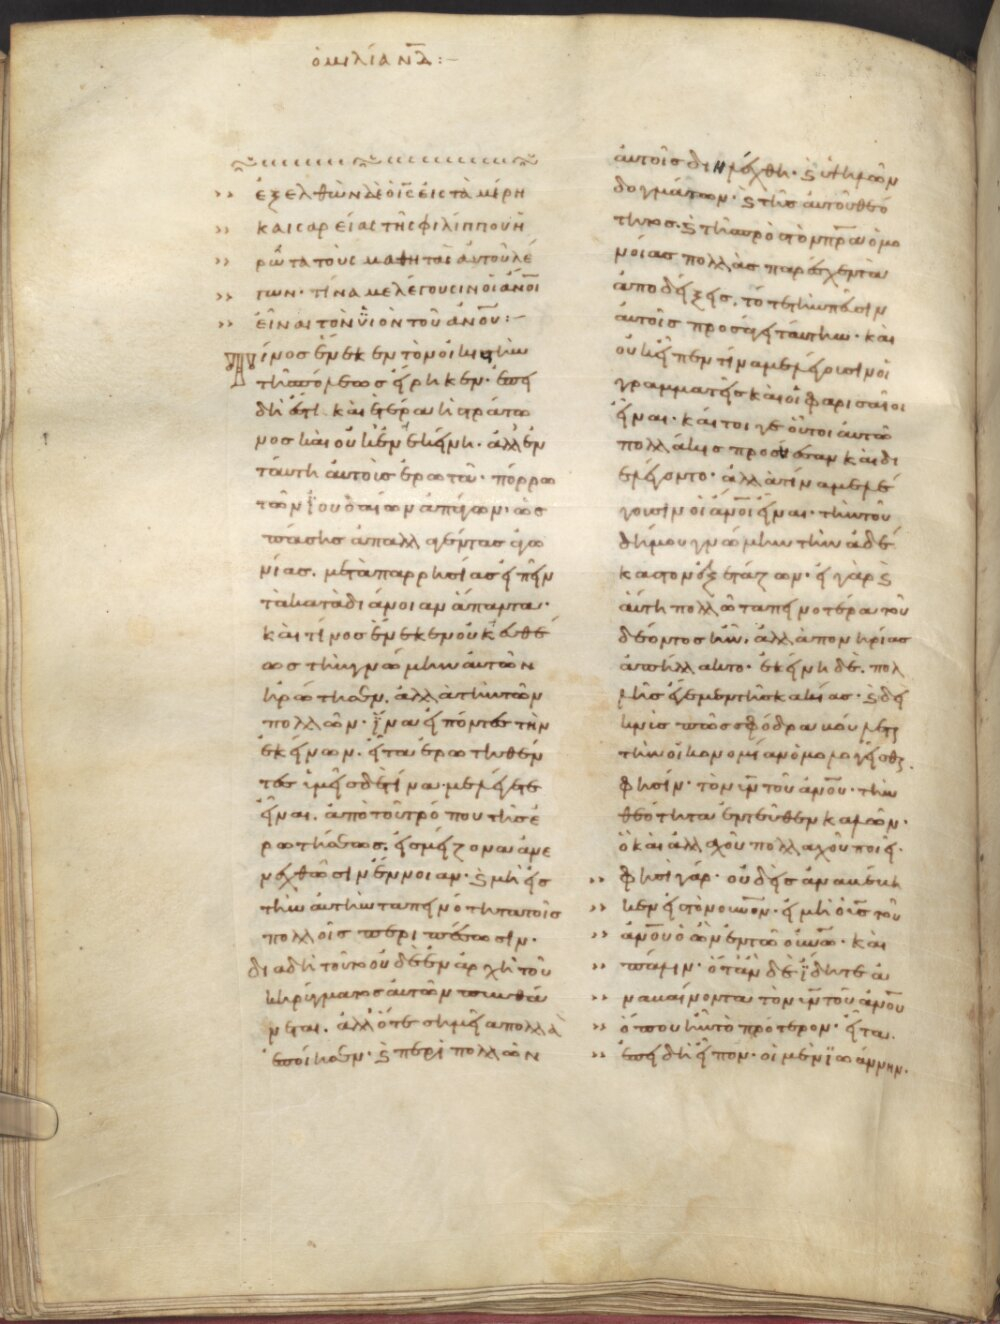 ὁμιλία ΝΔ:–
ἐξελθὼν δὲ ὁ ΙΣ εἰς τὰ μέρη
καισαρείας τῆς φιλίππου ἠ
ρώτα τοὺς μαθητὰς αὐτοῦ λέ
γων· τίνα με λέγουσιν οἱ ἄνοι
εἶναι τὸν ὑϊὸν τοῦ ἀνου:–
Τίνος ἕνεκεν τὸν οἰκιστὴν
τῆς πόλεως εἴρηκεν· ἐπει
δὴ ἔστι καὶ ἑτέρα ἡ στράτω
νος καὶ οὐκ ἐν ἐκείνη· ἀλλ' ἐν
ταύτη αὐτοὺς ἐρωτᾶ· πόρρω
τῶν ἰουδαίων ἀπάγων· ὥστε
πάσης ἀπαλλαγέντας ἀγω
νίας. μετὰ παρρησίας εἰπεῖν
τὰ κατὰ διάνοιαν ἅπαντα·
καὶ τίνος ἕνεκεν οὐκ εὐθέ
ως τὴν γνώμην αὐτῶν
ἠρώτησεν. ἀλλὰ τὴν τῶν
πολλῶν· ἵνα εἰπόντες τὴν
ἐκείνων. εἶτα ἐρωτηθέν
τες ὑμεῖς δὲ τίνα με λέγετε
εἶναι. ἀπὸ τοῦ τρόπου τῆς ἐ
ρωτήσεως. εἰς μείζονα ἀνε
νεχθῶσιν ἔννοιαν· καὶ μὴ εἰς
τὴν αὐτὴν ταπεινότητα τοῖς
πολλοῖς περιπέσωσιν·
διὰ δὴ τοῦτο οὐδὲ ἐν ἀρχῆ τοῦ
κηρύγματος αὐτῶν πυνθά
νεται. ἀλλ' ὅτε σημεῖα πολλὰ
ἐποίησεν· καὶ περὶ πολλῶν
αὐτοῖς διηλέχθη· καὶ ὑψηλῶν
δογμάτων· καὶ τῆς αὐτοῦ θεό
τητος· καὶ τῆς πρὸς τὸν πρα ὁμο
νοίας πολλὰς παρέσχεν τὰς
ἀποδείξεις. τότε τὴν πεῦσιν
αὐτοῖς προσάγει ταύτην· καὶ
οὐκ εἶπεν τίνα με λέγουσιν οἱ
γραμματεῖς καὶ οἱ φαρισαῖοι
εἶναι· καίτοι γε οὗτοι αὐτῶ
πολλάκις προσήεσαν καὶ δι
ελέγοντο· ἀλλὰ τίνα με λέ
γουσιν οἱ ἄνοι εἶναι· τὴν τοῦ
δήμου γνώμην τὴν ἀδέ
καστον ἐξετάζων· εἰ γὰρ καὶ
αὕτη πολλῶ ταπεινοτέρα τοῦ
δέοντος ἦν. ἀλλὰ πονηρίας
ἀπήλλακτο· ἐκείνη δὲ. πολ
λῆς ἔγεμεν τῆς κακίας· καὶ δει
κνὺς πῶς σφόδρα βούλεται
τὴν οἰκονομίαν ὁμολογεῖσθαι.
φησίν· τὸν ὑν τοῦ ἀνου· τὴν
θεότητα ἐντεῦθεν καλῶν·
ὃ καὶ ἀλλαχοῦ πολλαχοῦ ποιεῖ·
φησὶ γάρ· οὐδεὶς ἀναβέβη
κεν εἰς τὸν οὐνον· εἰ μὴ ὁ υἱς τοῦ
ἀνου ὁ ὢν ἐν τῶ οὐνῶ· καὶ
πάλιν· ὅταν δὲ ἴδητε ἀ
ναβαίνοντα τὸν ὑν τοῦ ἀνου
ὅπου ἦν τὸ πρότερον· εἶτα.
ἐπειδὴ εἶπον· οἱ μὲν ἰωάννην.